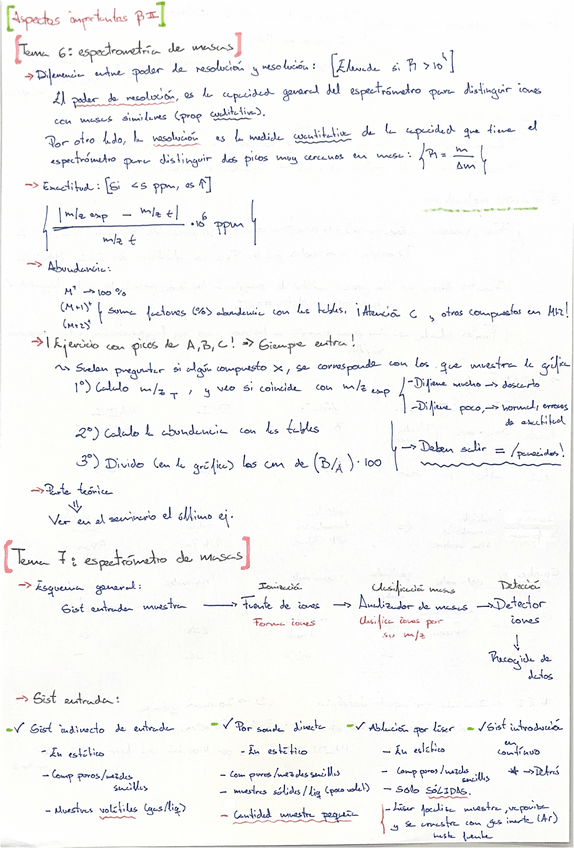 [Aspectos importantes B II]
[Tema 6: espectrometría de masas]
→ Diferencia entre poder de resolución y resolución: [Elevada si R > 10⁴]
El poder de resolución, es la capacidad general del espectrómetro para distinguir iones
con masas similares (prop cualitativa).
Por otro lado, la resolución es la medida cuantitativa de la capacidad que tiene el
espectrómetro para distinguir dos picos muy cercanos en masa: {R = m/Δm}
→ Exactitud: [Si <5 ppm, es ↑]
{ |m/z exp − m/z t| / m/z t · 10⁶ ppm }
→ Abundancia:
M⁺ → 100 %
(M+1)⁺ } suma factores (%) abundancia con las tablas. ¡Atención C, otros compuestos en M+2!
(M+2)⁺
→ ¡Ejercicio con picos de A, B, C! ⇒ Siempre entra!
Suelen preguntar si algún compuesto X, se corresponde con los que muestra la gráfica
1º) Calculo m/z T, y veo si coincide con m/z exp { - Difiere mucho → descarto
- Difiere poco, → normal, errores
de exactitud
2º) Calculo la abundancia con las tablas
3º) Divido (en la gráfica) los cm de (B/A) · 100 → Deben salir = /parecidos!
→ Parte teórica
⇓
Ver en el seminario el último ej.
[Tema 7: espectrómetro de masas]
→ Esquema general: Ionización Clasificación masas Detección
Sist entrada muestra → Fuente de iones → Analizador de masas → Detector
Forma iones Clasifica iones por iones
su m/z ↓
Recogida de
datos
→ Sist entrada:
- ✓ Sist indirecto de entrada - ✓ Por sonda directa - ✓ Ablación por láser - ✓ Sist introducción
en
continuo
- En estático - En estático - En estático
- Comp puros/mezclas - Com puros/mezclas sencillas - Comp puros/mezclas * → Detrás
sencillas sencillas
- muestras sólidas/liq (poco volat) - SOLO SÓLIDAS.
- Muestras volátiles (gas/liq) - Cantidad muestra pequeña - Láser focaliza muestra, vaporiza
y se arrastra con gas inerte (Ar)
hasta fuente